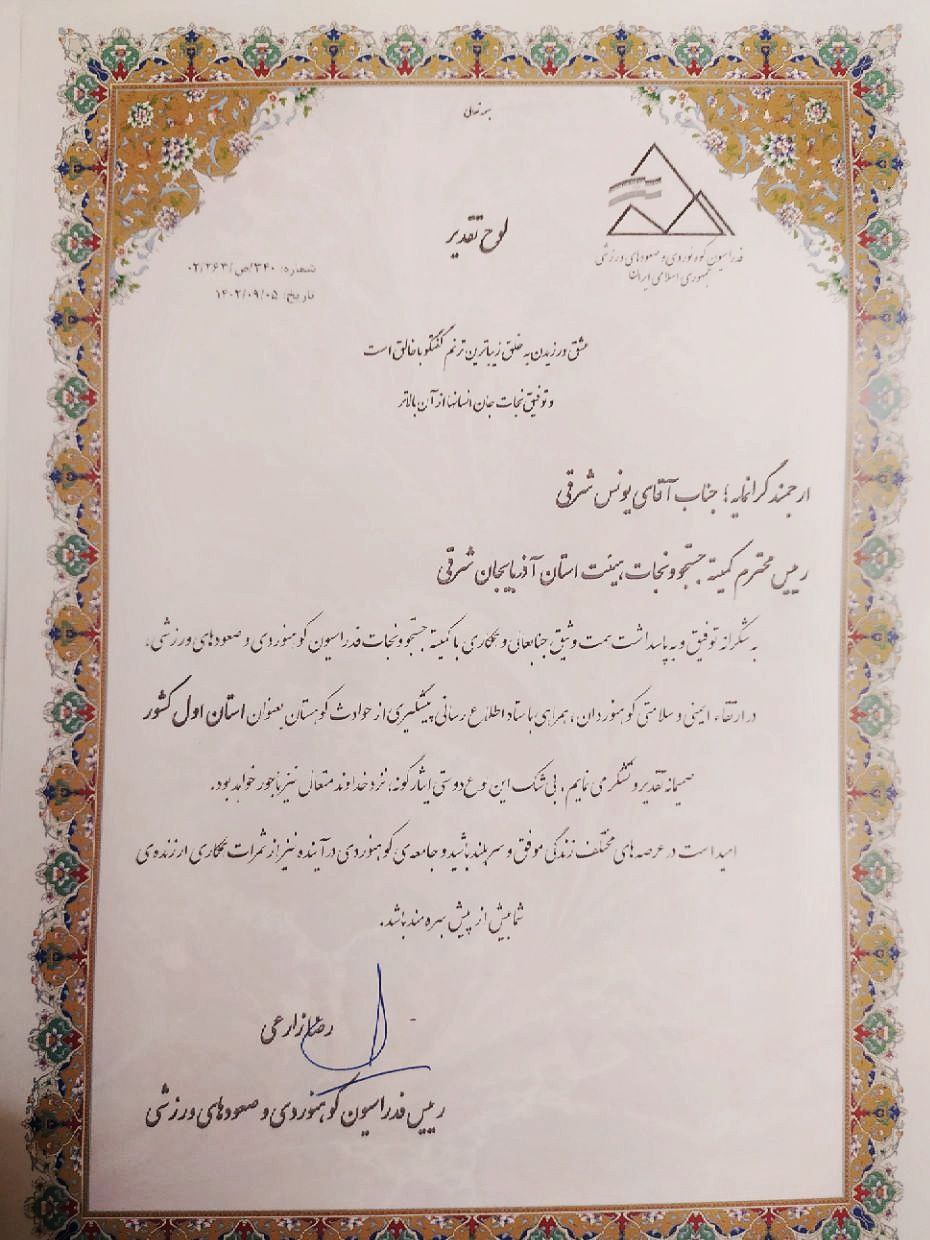 بسمه تعالی
فدراسیون کوه نوردی و صعودهای ورزشی
جمهوری اسلامی ایران
لوح تقدیر
شماره: ۳۴۰/ص/۰۲/۲۶۳
تاریخ: ۱۴۰۲/۰۹/۰۵
عشق ورزیدن به خلق زیباترین ترنم گفتگو با خالق است
و توفیق نجات جان انسانها از آن بالاتر
ارجمند گرانمایه؛ جناب آقای یونس شرقی
رییس محترم کمیته جستجو و نجات هیئت استان آذربایجان شرقی
به شکرانه توفیق و به پاسداشت همت وثیق جنابعالی و همکاری با کمیته جستجو و نجات فدراسیون کوهنوردی و صعودهای ورزشی،
در ارتقاء ایمنی و سلامتی کوهنوردان، همراهی با ستاد اطلاع رسانی پیشگیری از حوادث کوهستان بعنوان استان اول کشور
صمیمانه تقدیر و تشکر می نمایم، بی شک این نوع دوستی ایثارگونه، نزد خداوند متعال نیز ماجور خواهد بود.
امید است در عرصه های مختلف زندگی موفق و سربلند باشید و جامعه ی کوهنوردی در آینده نیز از ثمرات همکاری ارزنده ی
شما بیش از پیش بهره مند باشد.
رضا زارعی
رییس فدراسیون کوهنوردی و صعودهای ورزشی